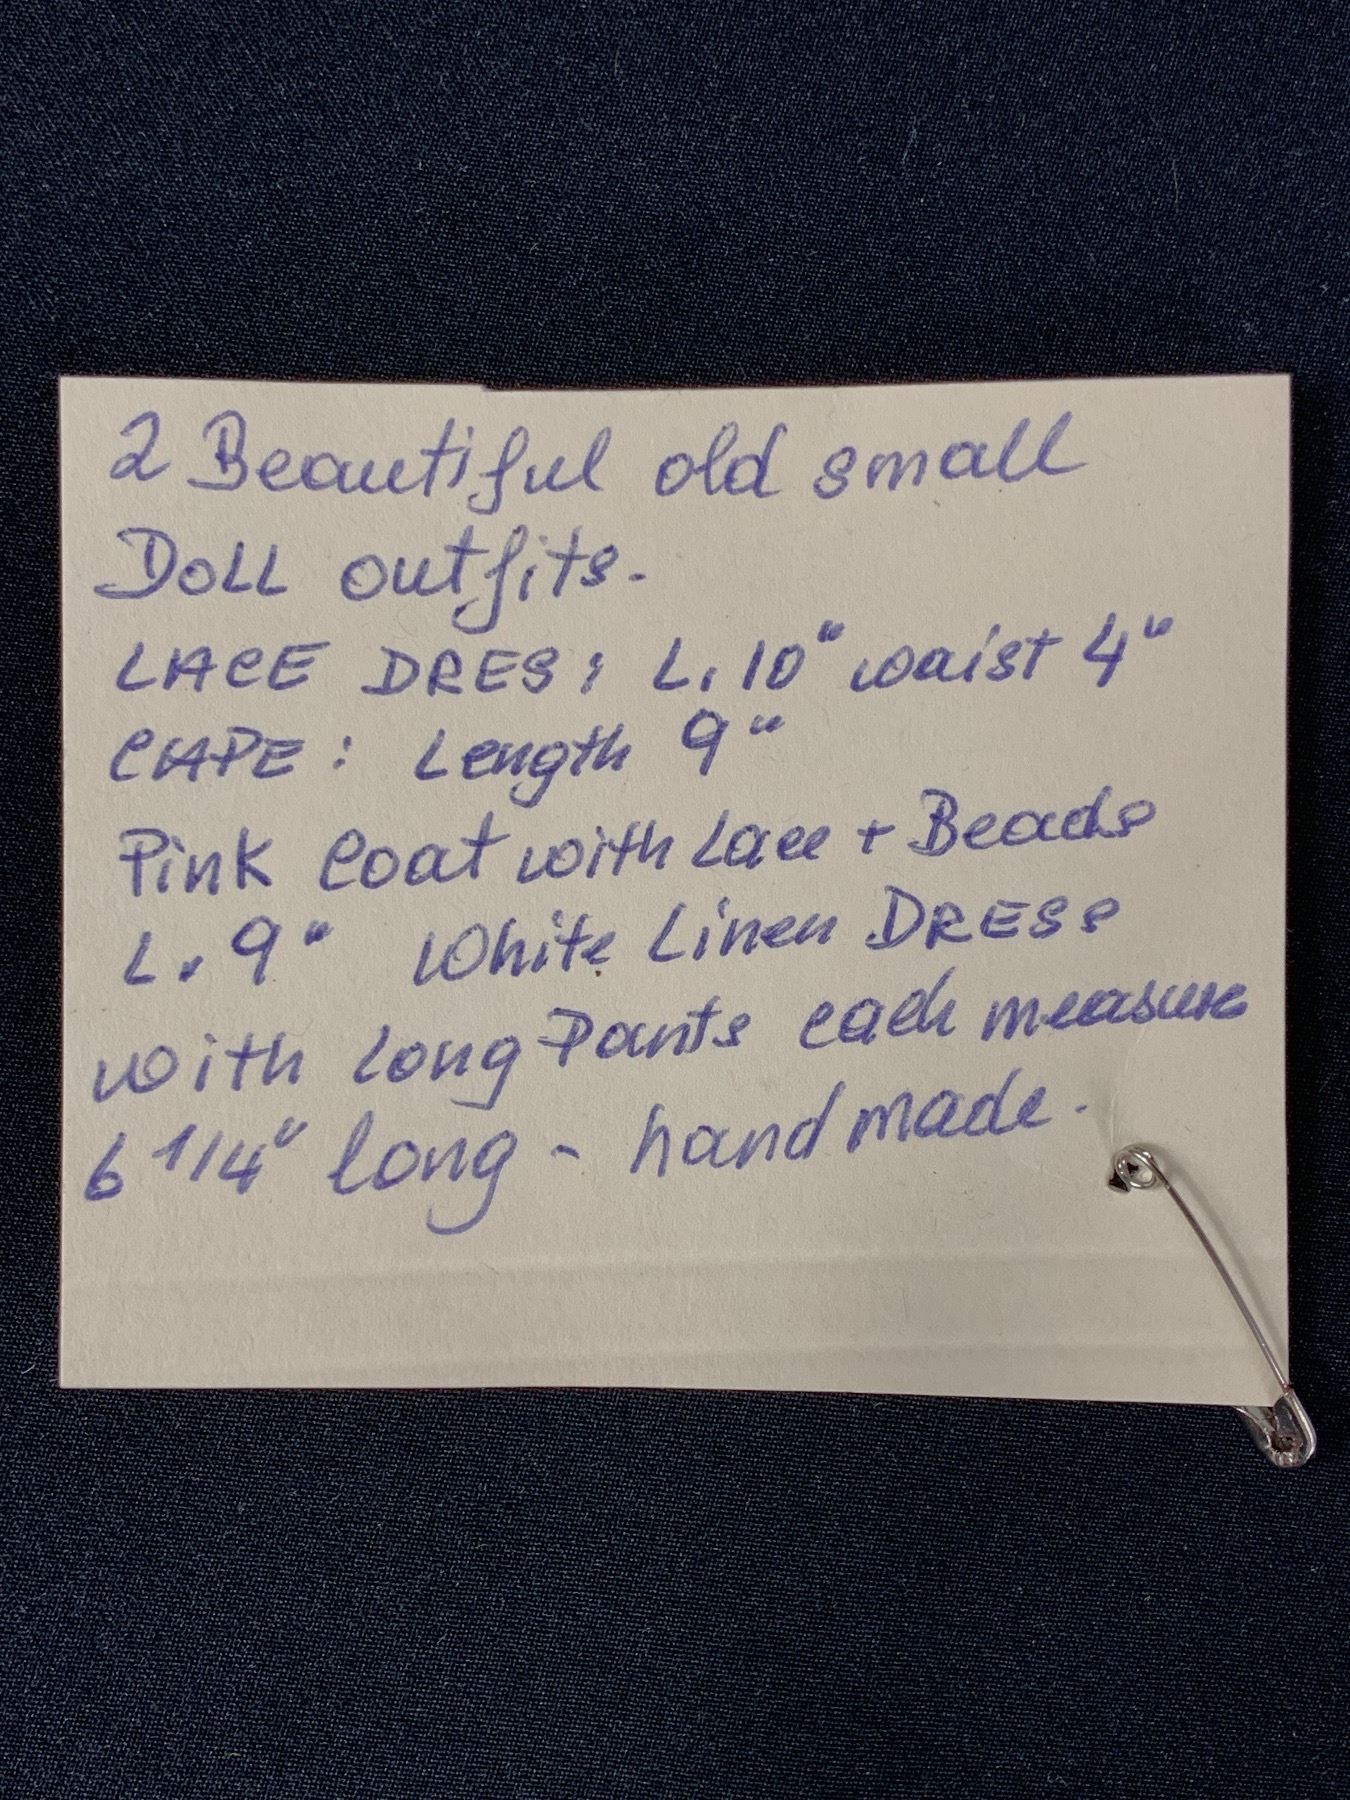 2 Beautiful old small
Doll outfits.
LACE DRES: L. 10" waist 4"
CAPE: Length 9"
Pink Coat with Lace + Beads
L. 9" White Linen DRESS
with Long Pants each measure
6 1/4" long - hand made.